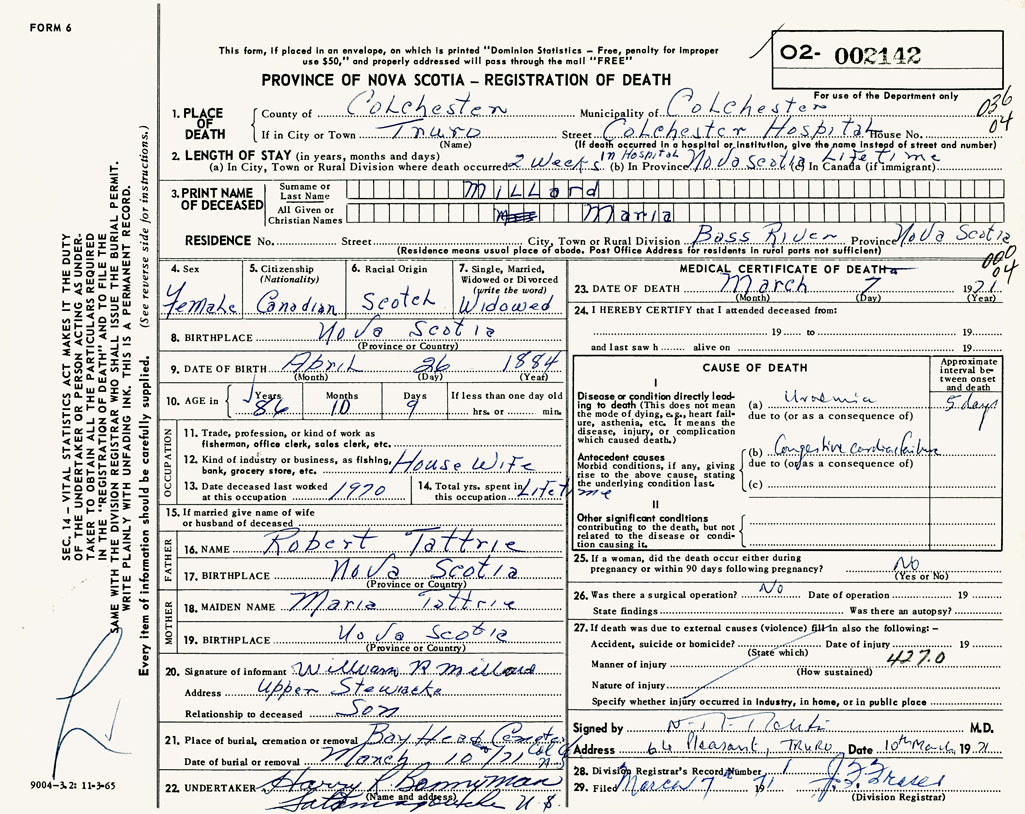 FORM 6
This form, if placed in an envelope, on which is printed "Dominion Statistics – Free, penalty for improper
use $50," and properly addressed will pass through the mail "FREE"
PROVINCE OF NOVA SCOTIA – REGISTRATION OF DEATH
O2- 002142
For use of the Department only
036
04
1. PLACE OF DEATH County of Colchester Municipality of Colchester
If in City or Town Truro (Name) Street Colchester Hospital House No.
(If death occurred in a hospital or institution, give the name instead of street and number)
2. LENGTH OF STAY (in years, months and days)
(a) In City, Town or Rural Division where death occurred 2 Weeks in Hospital (b) In Province Nova Scotia (c) In Canada (if immigrant) Life time
3. PRINT NAME OF DECEASED Surname or Last Name Millard
All Given or Christian Names Maria
RESIDENCE No. Street City, Town or Rural Division Bass River Province Nova Scotia
(Residence means usual place of abode. Post Office Address for residents in rural parts not sufficient)
000
04
4. Sex Female
5. Citizenship (Nationality) Canadian
6. Racial Origin Scotch
7. Single, Married, Widowed or Divorced (write the word) Widowed
8. BIRTHPLACE Nova Scotia
(Province or Country)
9. DATE OF BIRTH April 26 1884
(Month) (Day) (Year)
10. AGE in Years 86 Months 10 Days 9 If less than one day old
hrs. or min.
OCCUPATION
11. Trade, profession, or kind of work as
fisherman, office clerk, sales clerk, etc.
12. Kind of industry or business, as fishing,
bank, grocery store, etc. House Wife
13. Date deceased last worked
at this occupation 1970
14. Total yrs. spent in
this occupation Lifetime
15. If married give name of wife
or husband of deceased
FATHER
16. NAME Robert Tattrie
17. BIRTHPLACE Nova Scotia
(Province or Country)
MOTHER
18. MAIDEN NAME Maria Tattrie
19. BIRTHPLACE Nova Scotia
(Province or Country)
20. Signature of informant William R Millard
Address Upper Stewiacke
Relationship to deceased Son
21. Place of burial, cremation or removal Bay Head
Date of burial or removal March 10/71
22. UNDERTAKER Harry R Bonnyman
(Name and address) Tatamagouche N S
MEDICAL CERTIFICATE OF DEATH
23. DATE OF DEATH March 7 1971
(Month) (Day) (Year)
24. I HEREBY CERTIFY that I attended deceased from:
19 to 19
and last saw h alive on 19
CAUSE OF DEATH
Approximate interval between onset and death
I
Disease or condition directly leading
to death (This does not mean
the mode of dying, e.g., heart failure,
asthenia, etc. It means the
disease, injury, or complication
which caused death.)
(a) Uraemia 5 days
due to (or as a consequence of)
Antecedent causes
Morbid conditions, if any, giving
rise to the above cause, stating
the underlying condition last.
(b) Congestive cardiac failure
due to (or as a consequence of)
(c)
II
Other significant conditions
contributing to the death, but not
related to the disease or condition
causing it.
25. If a woman, did the death occur either during
pregnancy or within 90 days following pregnancy? No
(Yes or No)
26. Was there a surgical operation? No Date of operation 19
State findings Was there an autopsy?
27. If death was due to external causes (violence) fill in also the following:–
Accident, suicide or homicide? Date of injury 19
(State which)
427.0
Manner of injury
(How sustained)
Nature of injury
Specify whether injury occurred in industry, in home, or in public place
Signed by M.D.
Address 64 Pleasant, TRURO Date 10th March 1971
28. Division Registrar's Record Number 1
29. Filed March 7 1971
(Division Registrar)
SEC. 14 – VITAL STATISTICS ACT MAKES IT THE DUTY
OF THE UNDERTAKER OR PERSON ACTING AS UNDER-
TAKER TO OBTAIN ALL THE PARTICULARS REQUIRED
IN THE "REGISTRATION OF DEATH" AND TO FILE THE
SAME WITH THE DIVISION REGISTRAR WHO SHALL ISSUE THE BURIAL PERMIT.
WRITE PLAINLY WITH UNFADING INK. THIS IS A PERMANENT RECORD.
Every item of information should be carefully supplied. (See reverse side for instructions.)
9004–3.2: 11-3-65